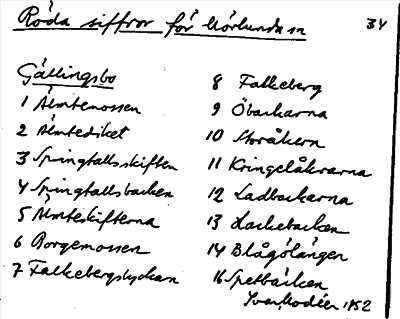 Röda siffror för Hörlundan 34
Gällingsbo
1 Älmtemossen
2 Älmtediket
3 Springtallsskiften
4 Springtallsbacken
5 Älmteskifterna
6 Borgemossen
7 Falkebergslyckan
8 Falkeberg
9 Öbackarna
10 Storåkern
11 Kringelåkrarna
12 Ladbackarna
13 Hackebacken
14 Blågölängen
16 Spetbäcken